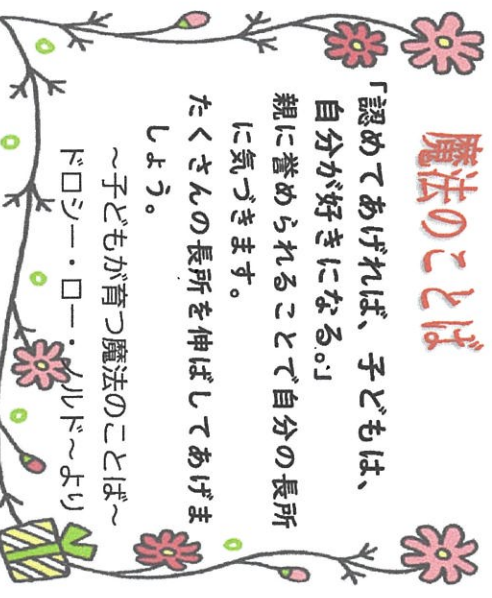 魔法のことば
「認めてあげれば、子どもは、
自分が好きになる。」
親に誉められることで自分の長所
に気づきます。
たくさんの長所を伸ばしてあげま
しょう。
～子どもが育つ魔法のことば～
ドロシー・ロー・ノルド～より